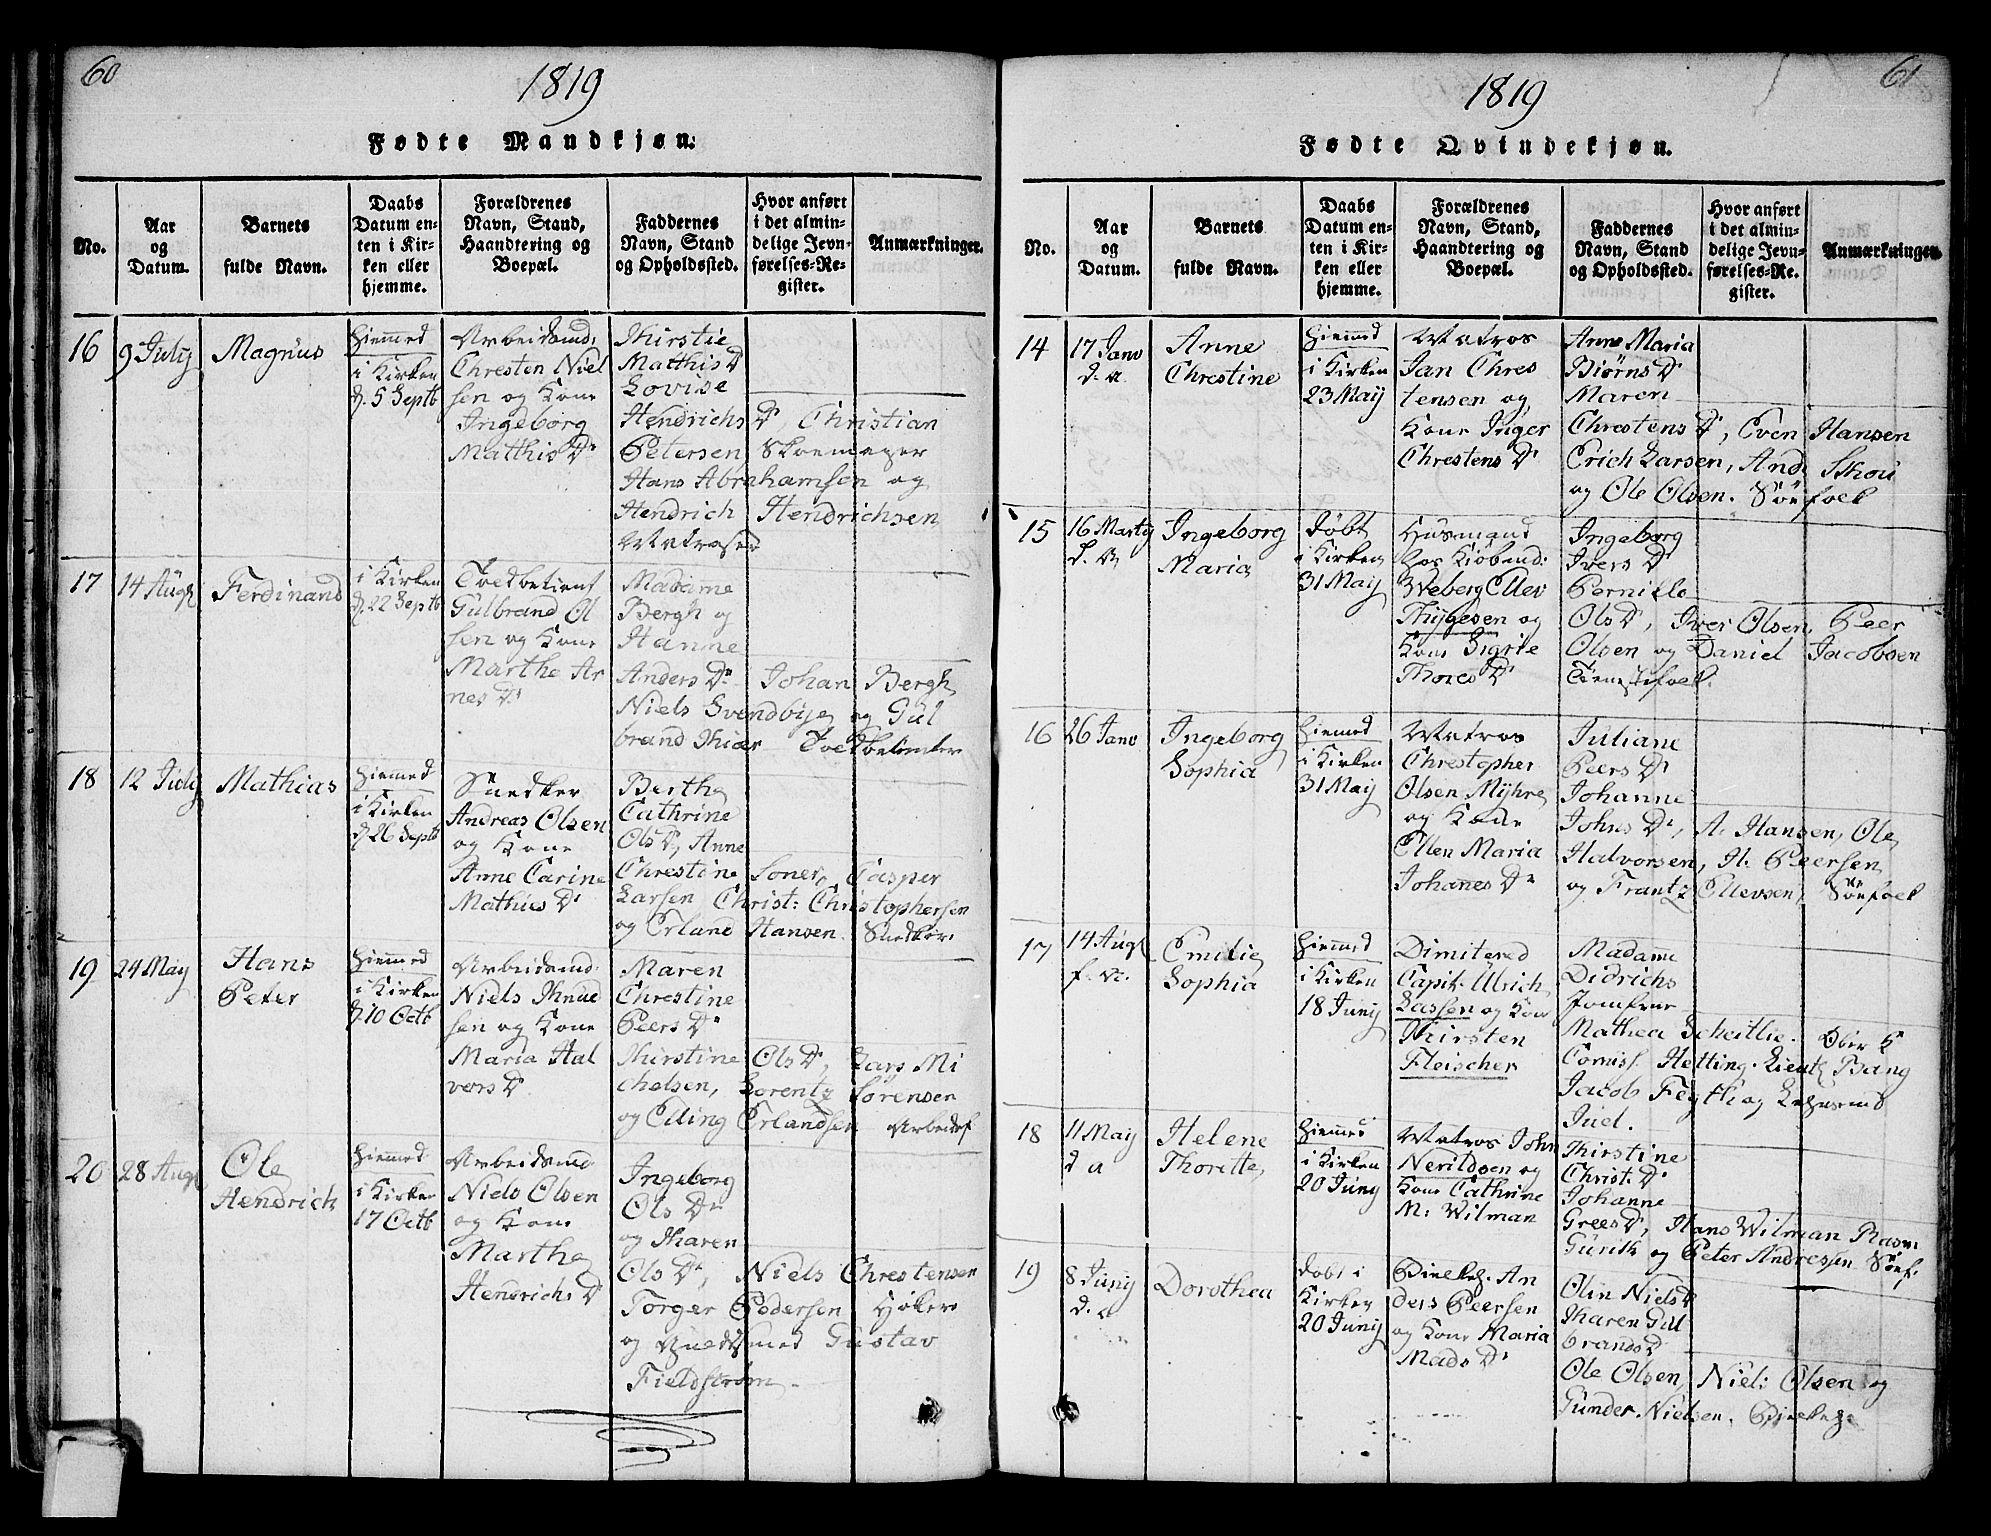 60
1819
Fødte Mandkjøn:
No.
Aar
og
Datum.
Barnets
fulde Navn.
Daabs
Datum en-
ten i Kir-
ken eller
hjemme.
Forældrenes
Navn, Stand,
Haandtering og
Boepæl.
Faddernes
Navn, Stand
og Opholdssted.
Hvor anført
i det almin-
delige Jevn-
førelses-Re-
gister.
Anmærkninger.
16
9 July
Magnus
Hiemmed
i Kirken
d. 5 Septb
Arbeidsmd:
Chresten Niel
sen og Kone
Ingeborg
Matthis Dr
Kirstie
Matthis D
Lovise
Hendrichs Dr, Christian
Petersen Skoemager
Hans Abrahamsen og
Hendrich Hendrichsen
Matroser
17
14 Augt
Ferdinand
i Kirken
d. 22 Septb
Gulbrand Ol
sen og Kone
Marthe Ar
nes Dr
Madame
Bergh og
Hanne
Anders Dr Johan Bergh
Niels Svendbye og Gul
brand
18
12 July
Mathias
Hiemmed
i Kirken
d. 26 Septb
Snedker
Andreas Olsen
og Kone
Anne Carine
Mathias Dr
Berthe
Cathrine
Ols Dr, Anne
Chrestine Soner, Casper
Larsen Christ: Christophersen
og Erland Hansen Snedker
19
24 May
Hans
Peter
Hiemmed
i Kirken
d. 10 Octb
Arbeidsmd.
Niels Knud
sen og Kone
Maria Hal
vors Dr
Maren
Chrestine
Peers Dr
Kirstine Ols Dr, Lars Mi
chelsen, Lorentz Sørensen
og Elling Erlandsen Arbeidsf
20
28 Augt
Ole
Hendrich
Hiemmed
i Kirken
17 Octb
Arbeidsmd
Niels Olsen
og Kone
Marthe
Hendrichs Dr
Ingeborg
Ols Dr
og Karen
Ols Dr, Niels Chrestensen
Torger Pedersen Høker
og Guldsmed Gustav
Fieldstrøm.
61
1819
Fødte Qvindekjøn.
No.
Aar
og
Datum.
Barnets
fulde Navn.
Daabs
Datum en-
ten i Kir-
ken eller
hjemme.
Forældrenes
Navn, Stand,
Haandtering og
Boepæl.
Faddernes
Navn, Stand
og Opholdssted.
Hvor anført
i det almin-
delige Jevn-
førelses-Re-
gister.
Anmærkninger.
14
17 Janv
d. a.
Anne
Chrestine
Hiemmed
i Kirken
23 May
Matros
Jan Chres
tensen og
Kone Inger
Chrestens Dr
Anne Maria
Biørns Dr
Maren
Chrestens Dr, Even Hansen
Erich Larsen, And: Skou
og Ole Olsen. Søefolk
15
16 Marty
Ingeborg
Maria
Døbt
i Kirken
31 May
Husmand
hos Kiøbmd:
Weberg Ellev
Thygesen og
Kone Sigrie
Thores Dr
Ingeborg
Ivers Dr
Pernille
Ols Dr, Iver Olsen, Peer
Olsen og Daniel Jacobsen
Tienestefolk
16
26 Janv
Ingeborg
Sophia
Hiemmed
i Kirken
31 May
Matros
Chrestopher
Olsen Myhre
og Kone
Ellen Maria
Johanes Dr
Juliane
Peers Dr
Johanne
Johns Dr, A. Hansen, Ole
Halvorsen, H. Peersen
og Frantz Ellevsen, Søefolk
17
14 Augt
Emilie
Sophia
Hiemmed
i Kirken
18 Juny
Dimitered
Capit. Ulrich
Lassen og Kone
Kirsten
Fleischer
Madame
Didrichs
Jomfrue
Mathea Scheitlie. Ober K
Comiss. Hetting. Lieut. Bang
Jacob Feyth og
Juel.
18
11 May
d a
Helene
Thorette
Hiemmed
i Kirken
20 Juny
Matros John
Nerildsen og
Kone Cathrine
M: Wilman
Kirstine
Christ. Dr
Johanne
Grees Dr, Hans Wilman Rasm
Gurik og Peter Andressen Søef.
19
8 Juny
d. a
Dorothea
Døbt i
Kirken
20 Juny
An
ders Peersen
og Kone Maria
Mads Dr
Olin Niels Dr
Karen Gul
brands Dr
Ole Olsen, Niels Olsen og
Gunder Nielsen.